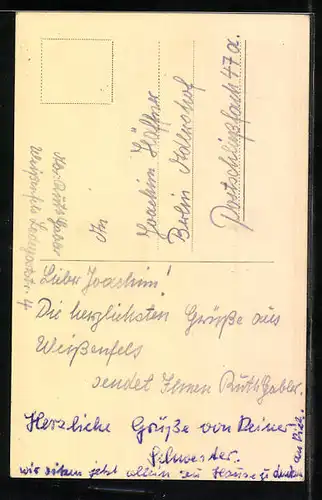 An
Joachim Höffner
Berlin Adlershof
Postschließfach 47a.
Ruth Gabler
Weißenfels
Lieber Joachim!
Die herzlichsten Grüße aus
Weißenfels
sendet Ihnen Ruth Gabler.
Herzliche Grüße von Deiner
Schwester.
wir sitzen jetzt allein zu Hause u. denken
an Dich.